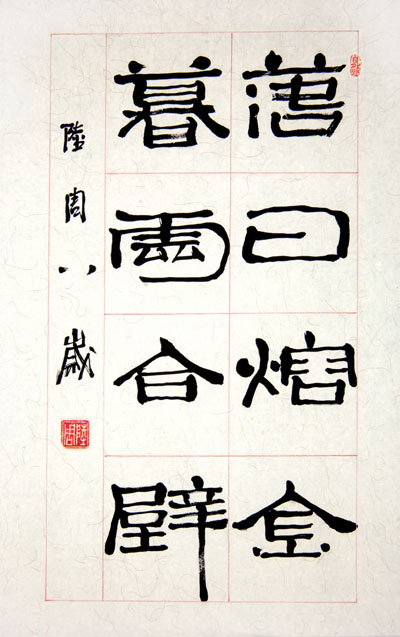 落日熔金
暮雲合璧
陸周八歲
陸周